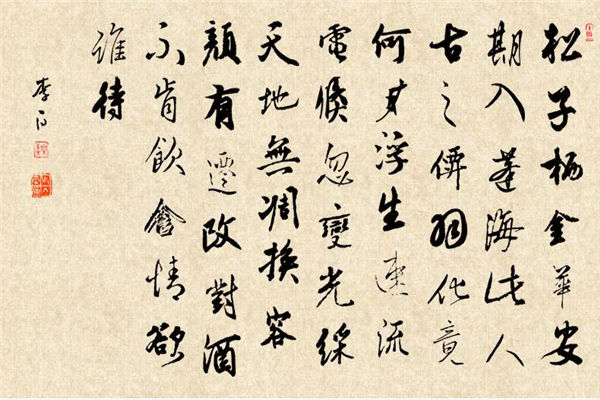 松子栖金華安
期入蓬海此人
古之僊羽化竟
何在浮生速流
電倏忽變光綵
天地無凋換容
顏有遷改對酒
不肯飲含情欲
誰待
李白